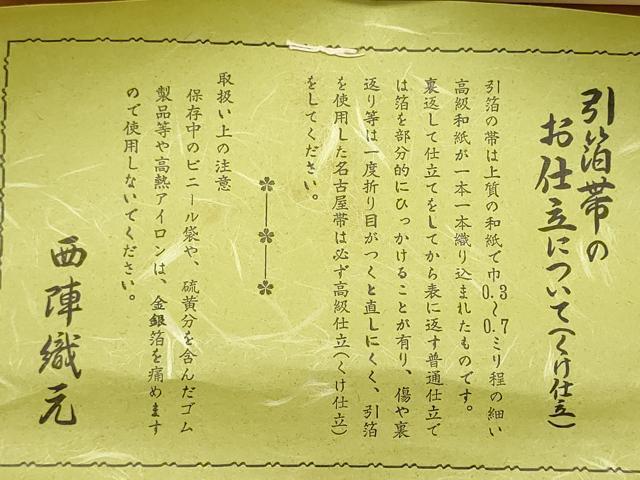 引箔帯の
お仕立について(くけ仕立)
引箔の帯は上質の和紙で巾0.3〜0.7ミリ程の細い
高級和紙が一本一本織り込まれたものです。
裏返して仕立てをしてから表に返す普通仕立で
は箔を部分的にひっかけることが有り、傷や裏
返り等は一度折り目がつくと直しにくく、引箔
を使用した名古屋帯は必ず高級仕立(くけ仕立)
をしてください。
取扱い上の注意
保存中のビニール袋や、硫黄分を含んだゴム
製品等や高熱アイロンは、金銀箔を痛めます
ので使用しないでください。
西陣織元